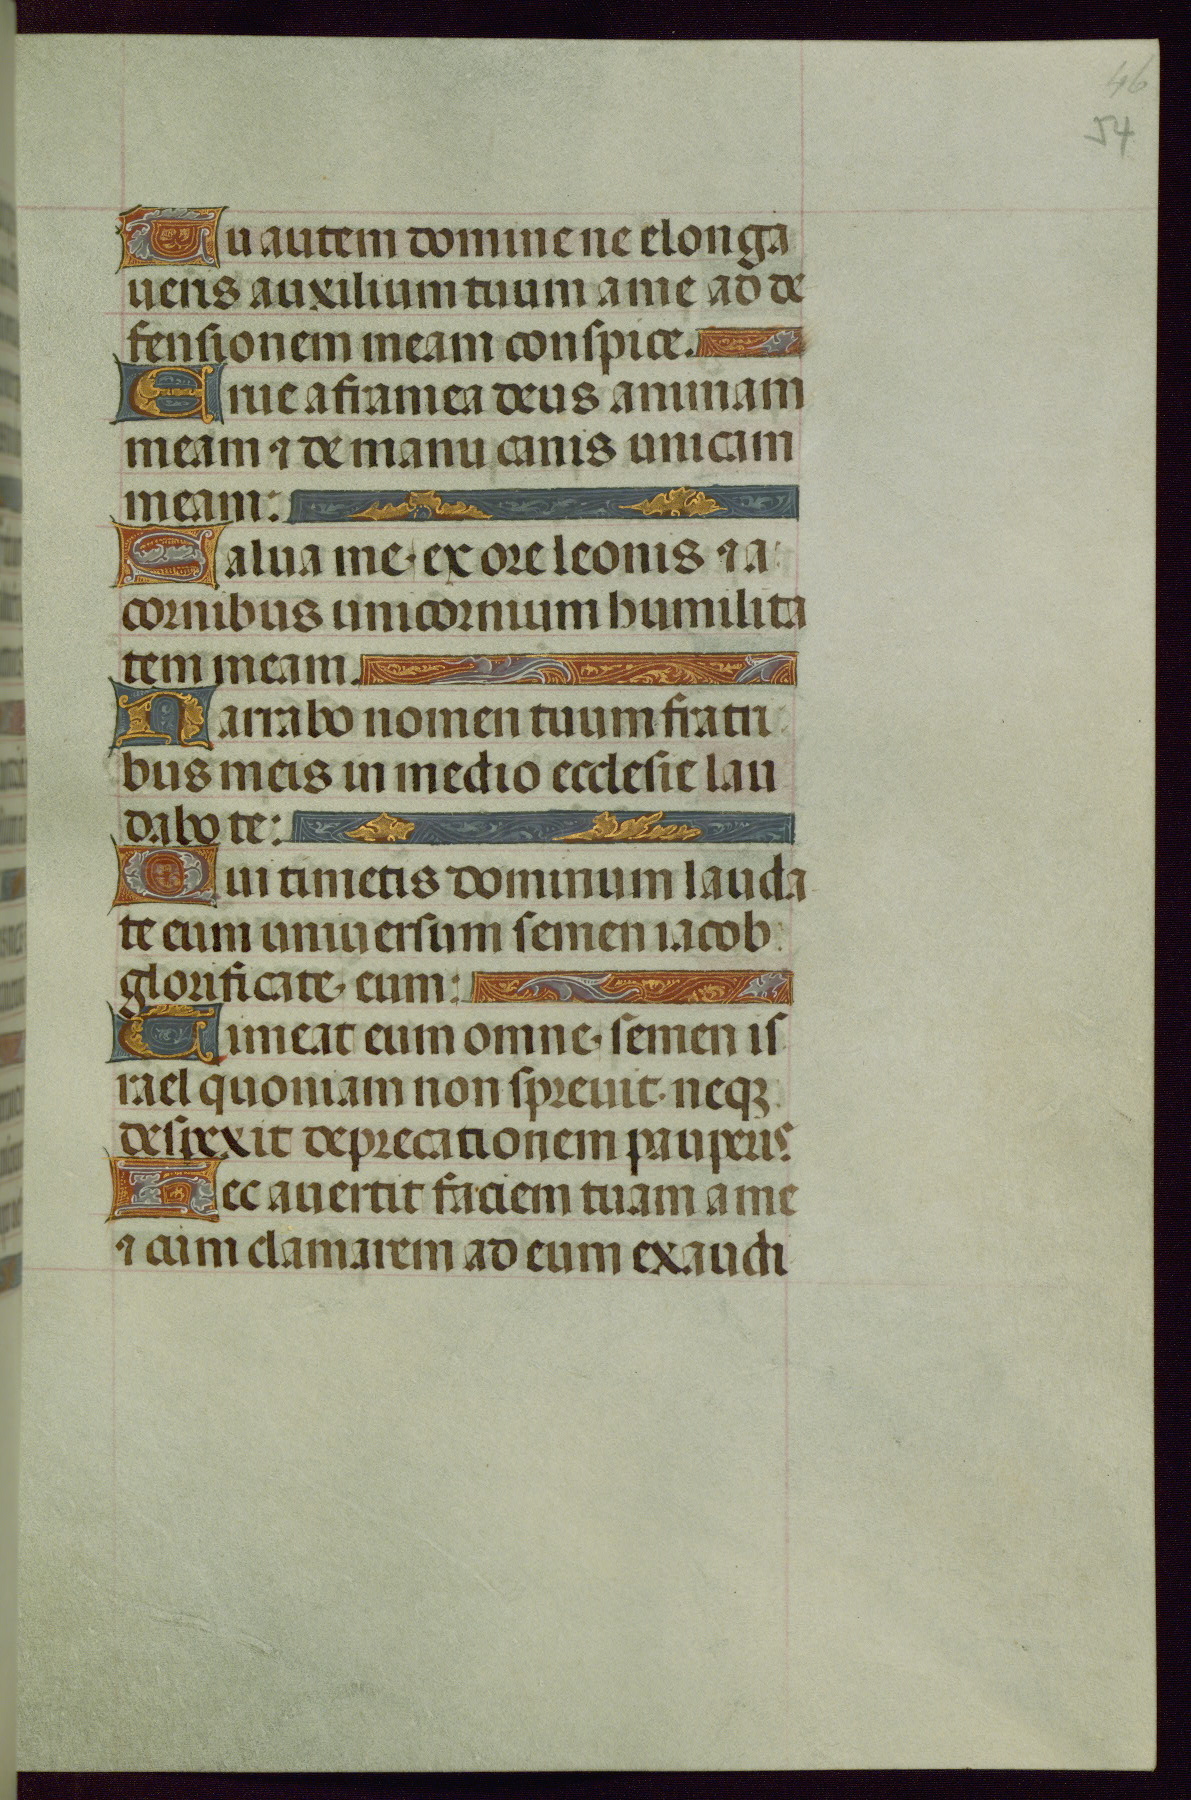 46
54
Tu autem domine ne elonga
ueris auxilium tuum a me ad de
fensionem meam conspice.
Erue a framea deus animam
meam ⁊ de manu canis unicam
meam:
Salua me ex ore leonis ⁊ a
cornibus unicornium humilita
tem meam.
Narrabo nomen tuum fratri
bus meis in medio ecclesie lau
dabo te:
Qui timetis dominum lauda
te eum uniuersum semen iacob
glorificate eum:
Timeat eum omne semen is
rael quoniam non spreuit neqꝫ
despexit deprecationem pauperis:
Nec auertit faciem tuam a me
⁊ cum clamarem ad eum exaudi